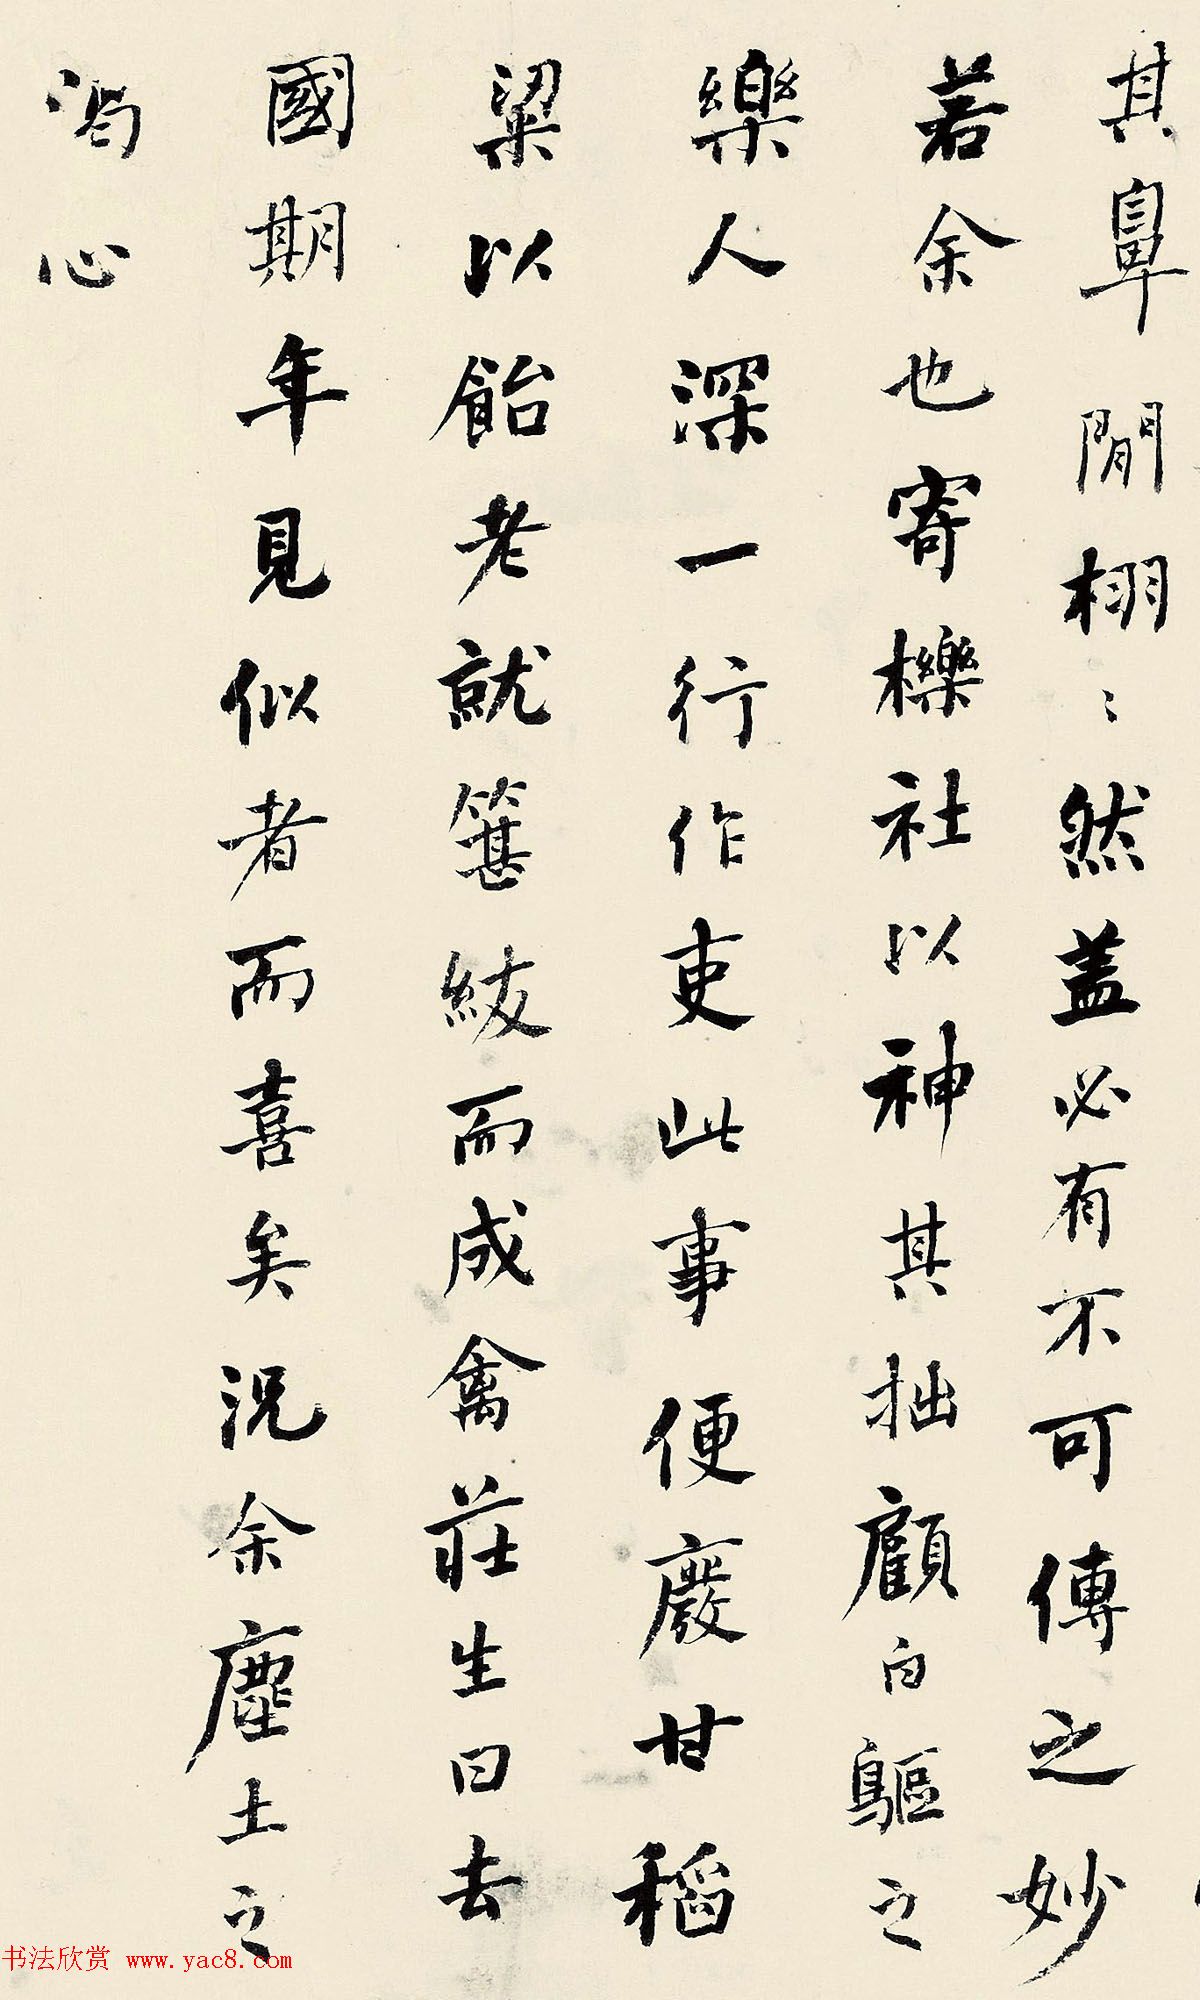 其鼻間栩〻然蓋必有不可傳之妙
若余也寄櫟社以神其拙顧白驅之
樂人深一行作吏此事便廢甘稻
粱以飴老就篹紱而成禽莊生曰去
國期年見似者而喜矣況余塵土之
渴心
书法欣赏 www.yac8.com